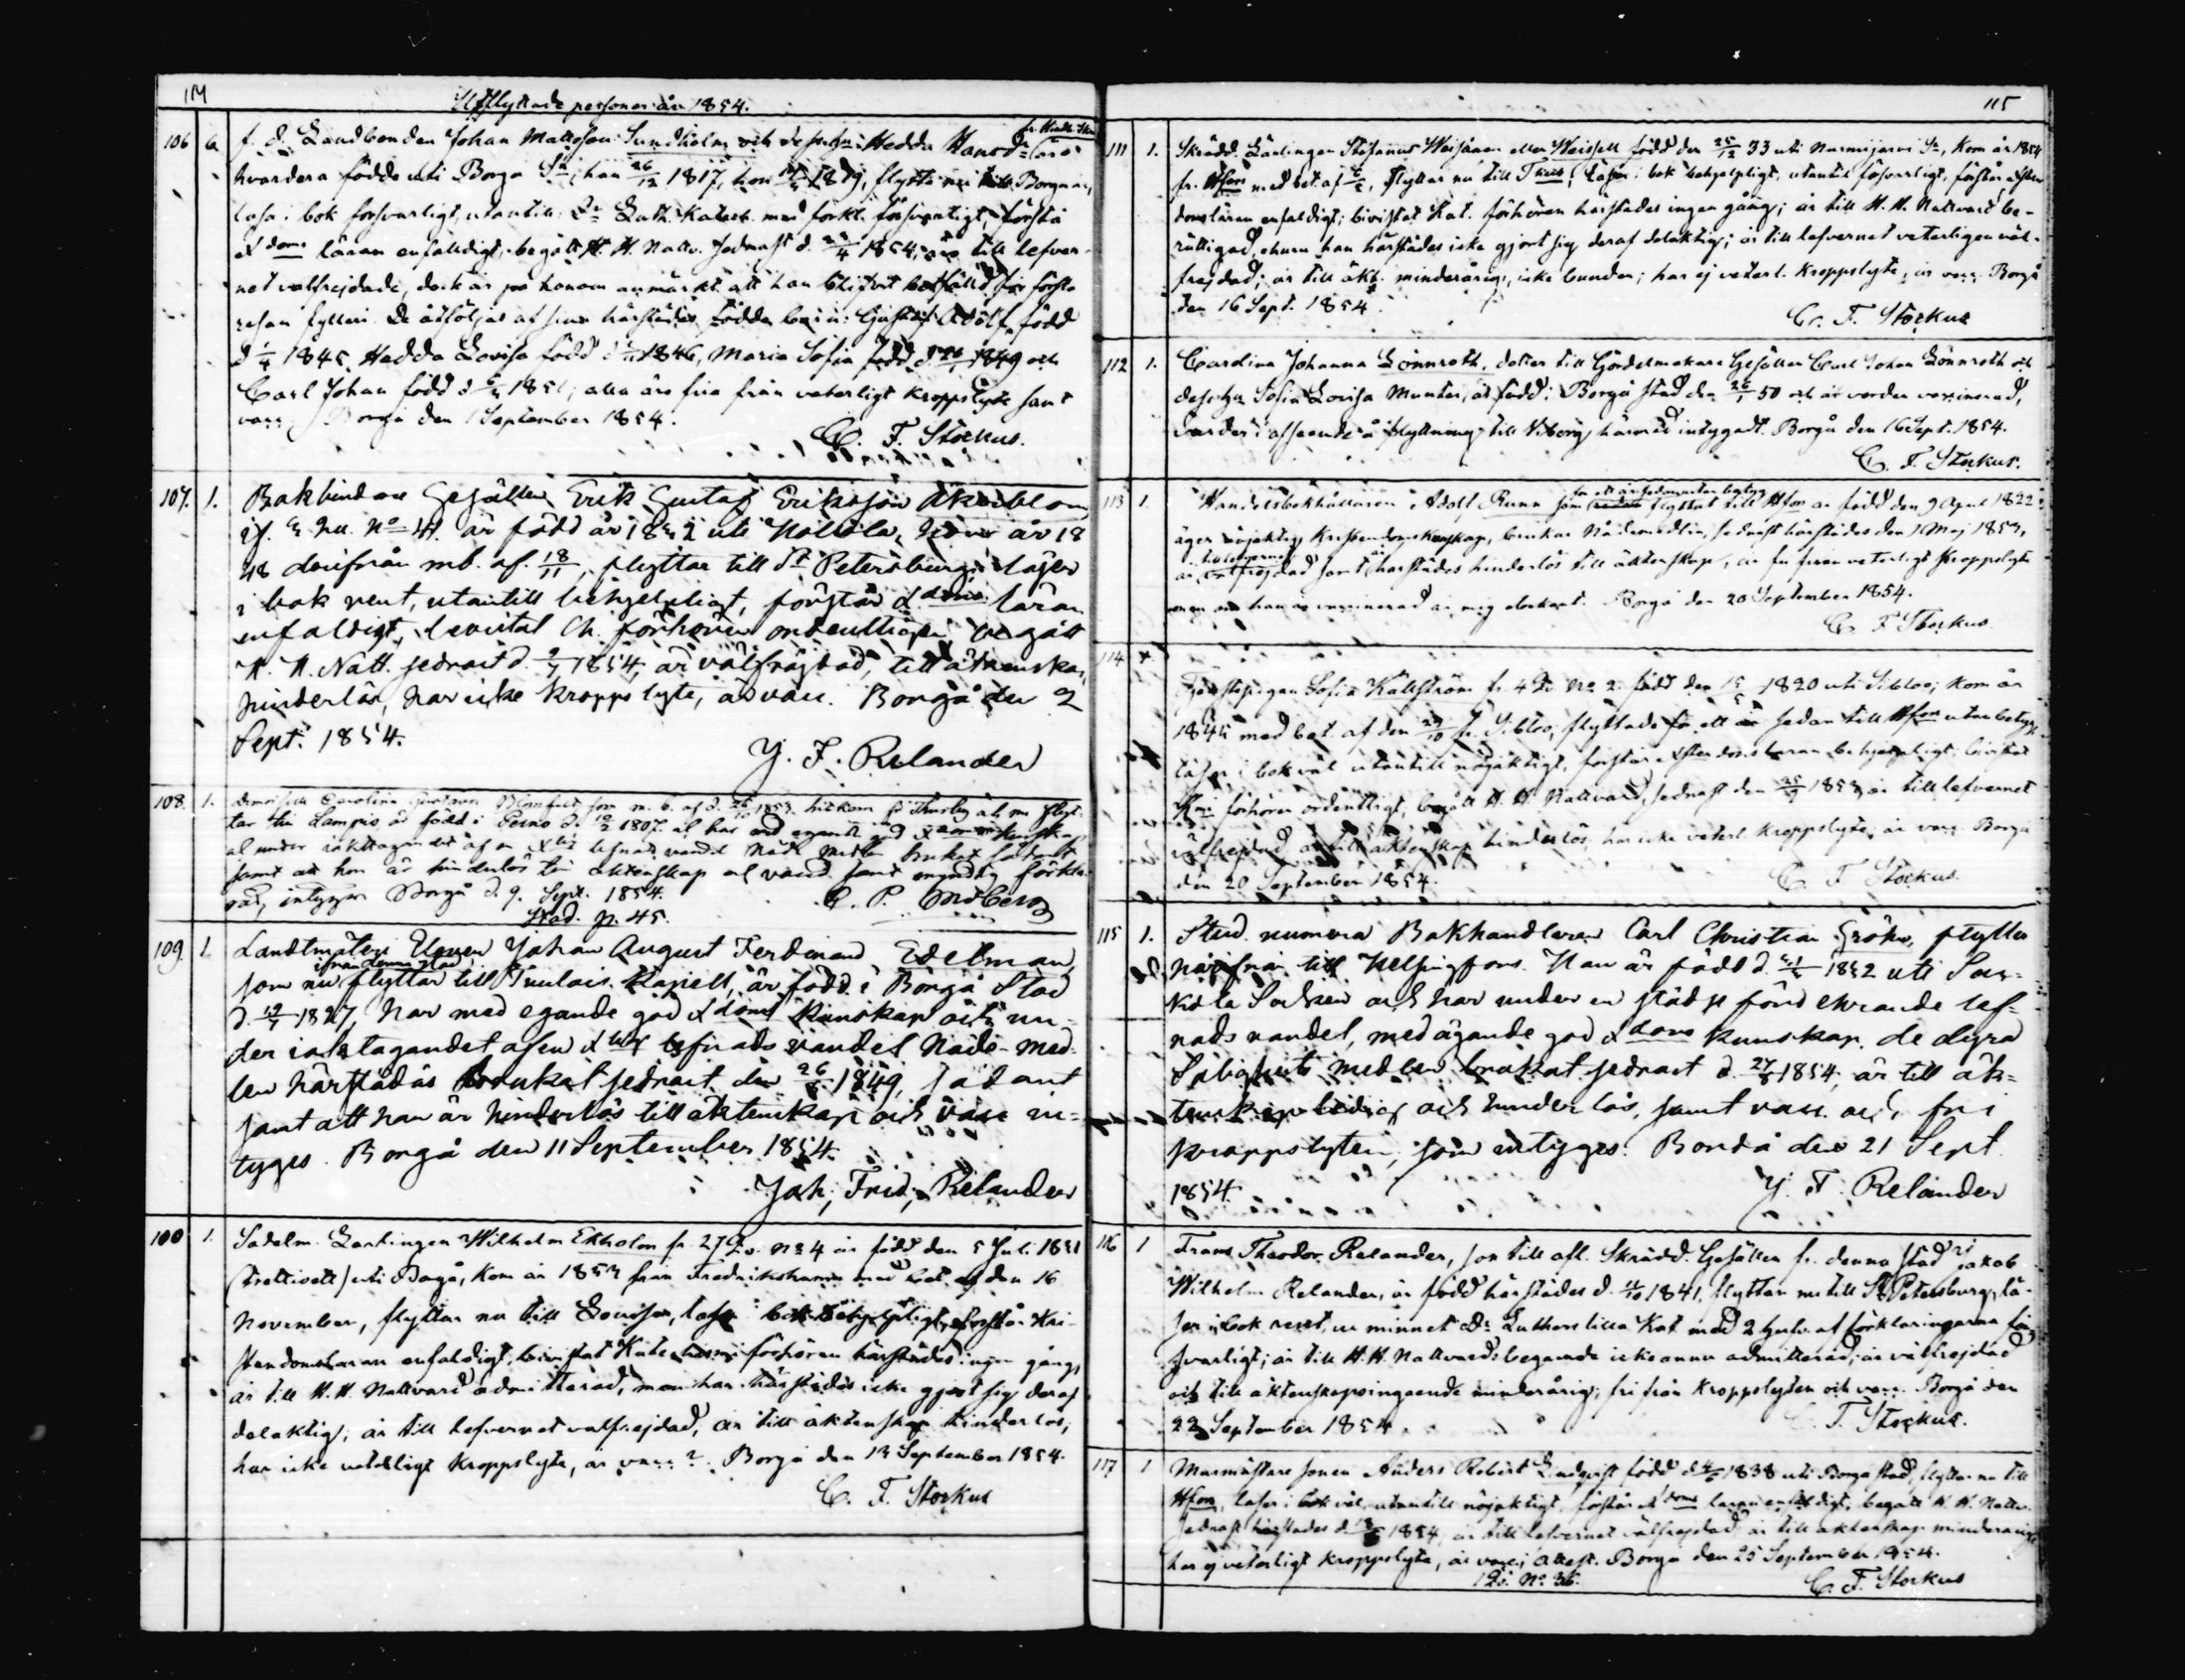 114
Utflyttade personer år 1854.
106 6 f. d. Landbonden Johan Mattsson Sundholm och dess h:u Hedda Hansd:r äro
hvardera födde uti Borgå S:n; han 26/12 1817, hon 1819, flytta nu till Borgnäs,
läsa i bok försvarligt, utantill D:r Luth. Katech. med förkl. försvarligt, förstå
X doms läran enfaldigt, begått H. H. Nattv. sednast d. 23/4 1854, äro till lefver-
net välfrejdade, dock är på honom anmärkt att han blifvit botfälld för första
resan fylleri. De åtföljas af sina härstädes födda barn: Gustaf Adolf född
d 1845, Hedda Lovisa född d 1846, Maria Sofia född d. 1849 och
Carl Johan född d 1851; alla äro fria från veterligt kroppslyte samt
vacc. Borgå den 1 September 1854.
C. F. Stockus.
107. 1. Bokbindare Gesällen Erik Gustaf Eriksson Åkerblom
if. Qu. No 41. är född år 1832 uti Hollola, kom år 18
48 derifrån m b. af 18/11, flyttar till S:t Petersburg, läser
i bok rent, utantill behjelpligt, förstår X doms läran
enfaldigt, bevistat Ch. förhören ordentligen, begått
H. H. Natt. sednast d. 1854, är välfrejdad, till äktenskap
hinderlös, har icke kroppslyte, är vacc. Borgå den 2
Sept. 1854.
J. F. Relander
108. 1. Demoiselle Carolina Gustava Blomfelt som m. b. af d. 26/10 1853 hitkom fr Thusby och nu flyt-
tar till Lampis är född i Perno d. 12/2 1807 och har med egande god X doms kunskap
och under iakttagandet af en X lig lefnads vandel Nåde medlen brukat sådant
samt att hon är hinderlös till äktenskap och vacc. samt myndig förkla-
rad, intygar Borgå d. 9. Sept. 1854.
C. P. Moberg
Stad. p. 45.
109. 1. Landtmäteri Eleven Johan August Ferdinand Edelman,
ifrån denna stad
som nu flyttar till Tuulois Kapell, är född i Borgå Stad
d. 1827, har med egande god X doms kunskap och un-
der iakttagandet af en X lig lefnads vandel Nåde-med-
len härstädes brukat sednast den 26/8 1849, sådant
samt att han är hinderlös till äktenskap och vacc in-
tyges. Borgå den 11 September 1854.
Joh. Frid. Relander
100 1. Sadelm. Lärlingen Wilhelm Ekholm fr. 27 Qv. No 4 är född den 5 Juli 1831
(trettioett) uti Borgå, kom år 1853 från Fredrikshamn med bet. af den 16
November, flyttar nu till Lovisa, läser i bok behjelpligt, förstår Kri-
stendomsläran enfaldigt, bevistat Katechismi förhören härstädes ingen gång,
är till H. H. Nattvard admitterad, men har härstädes icke gjort sig deraf
delaktig; är till lefvernet välfrejdad, är till äktenskap hinderlös,
har icke veterligt kroppslyte, är vacc? Borgå den 13 September 1854.
C. F. Stockus
115
111 1. Skrädd. Lärlingen Stefanus Weijänen eller Weissell född den 25/12 33 uti Nurmijärvi S:n, kom år 1854
fr. Hfors med bet. af, flyttar nu till Thus, läser i bok behjelpligt, utantill försvarligt, förstår Christen
domsläran enfaldigt; bevistat Kat. förhören härstädes ingen gång; är till H. H. Nattvard be-
rättigad, ehuru han härstädes icke gjort sig deraf delaktig; är till lefvernet veterligen väl-
frejdad; är till äkt. minderårig, icke bunden; har ej veterl. kroppslyte, är vacc. Borgå
den 16 Sept. 1854.
C. F. Stockus
112 1. Carolina Johanna Lönnroth, dotter till Gördelmakare Gesällen Carl Johan Lönnroth och
dess h:u Sofia Lovisa Munter, är född i Borgå stad den 26/1 50 och är vorden vaccinerad,
varder i afseende å flyttning till Viborg härmed intygadt. Borgå den 16 Sept. 1854.
C. F. Stockus.
113 1. Handelsbokhållaren Adolf Runn som för ett år sedan utan betyg flyttat till Hfors är född den 9 April 1822
äger nöjaktig kristendomskunskap, brukar Nådemedlen, sednast härstädes den 1 Maj 1853,
är välfrejdad samt härstädes hinderlös till äktenskap, är fri från veterligt kroppslyte
men om han är vaccinerad är mig obekant. Borgå den 20 September 1854.
C. F. Stockus
114 Tjenstepigan Sofia Källström fr. 4 Qv. No 2 född den 15 1820 uti Sibbo; kom år
1845 med bet. af den 29/10 fr. Sibbo, flyttade för ett år sedan till Hfors utan betyg,
läser i bok väl utantill nöjaktigt, förstår Christendomsläran behjelpligt, bivistat
förhören ordentligt, begått H. H. Nattvard, sednast den 25/9 1853 är till lefvernet
välfrejdad är till äktenskap hinderlös, har icke veterl. kroppslyte, är vacc. Borgå
den 20 September 1854.
C. F. Stockus.
115 1. Stud. numera Bokhandlaren Carl Christian Fröhn, flyttar
härifrån till Helsingfors. Han är född d. 1832 uti
Socken och har under en städse förd ehrande lef-
nads vandel, med ägande god X doms kunskap, de dyra
Salighets medlen brukat sednast d. 27/8 1854, är till äk-
tenskap ledig och hinder lös, samt vacc. och fri
kroppslyten, som intyges. Borgå den 21 Sept.
1854.
J. F. Relander
116 1 Frans Theodor Relander, son till afl. Skrädd. Gesällen fr. denna stad Jakob
Wilhelm Relander, är född härstädes d. 1841, flyttar nu till St Petersburg, lä-
ser i bok rent, ur minnet D:r Luthers lilla Kat. med 2 hufv. af förklaringarna för-
svarligt; är till H. H. Nattvards begående icke ännu admitterad; är välfrejdad
och till äktenskaps ingående minderårig; fri från kroppslyten och vacc. Borgå den
22 September 1854.
C. F. Stockus.
117 1 Murmästare sonen Anders Robert Lindqvist född d. 1838 uti Borgå stad, flyttar nu till
Hfors, läser i bok väl, utantill nöjaktigt, förstår X doms läran enfaldigt, begått H. H. Nattv.
sednast härstades d. 1854, är till lefvernet välfrejdad, är till äktenskap minderårig
har ej veterligt kroppslyte, är vacc; attest. Borgå den 25 September 1854.
1 Qv. No 36.
C. F. Stockus